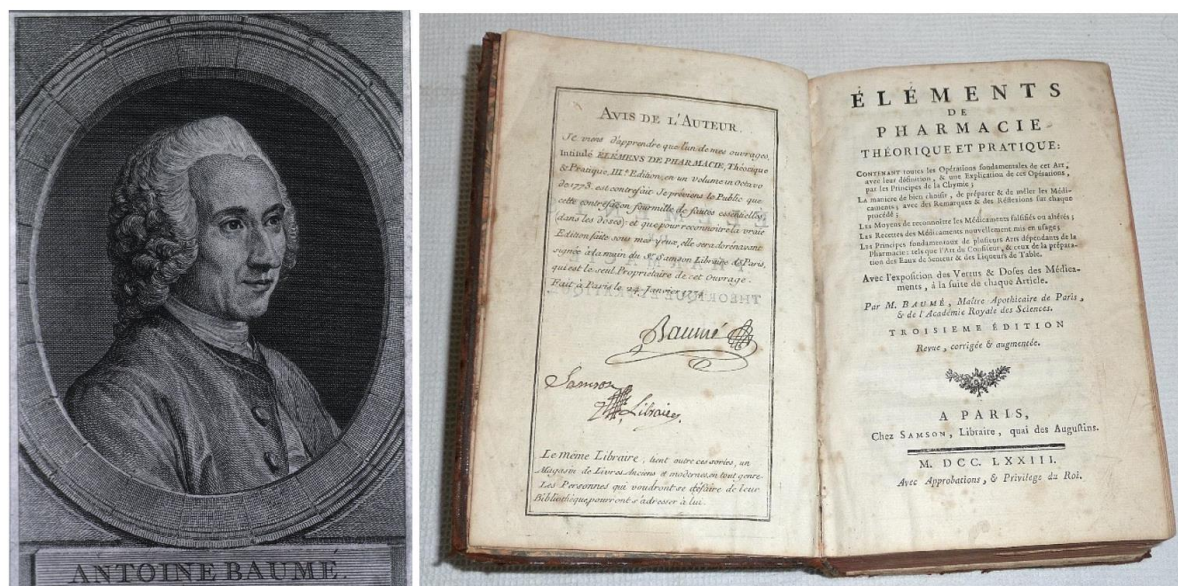 ANTOINE BAUMÉ.
AVIS DE L'AUTEUR.
Je viens d'apprendre que l'un de mes ouvrages,
Intitulé ÉLÉMENS DE PHARMACIE, Théorique
& Pratique, III.e Edition, en un volume in Octavo
de 1773, est contrefait. Je préviens le Public que
cette contrefaçon fourmille de fautes essentielles,
(dans les doses); et que pour reconnoitre la vraie
Edition faite sous mes yeux, elle sera dorénavant
signée à la main du Sr. Samson Libraire à Paris,
qui est le seul Propriétaire de cet Ouvrage.
Fait à Paris le 24 Janvier
Baumé
Samson
Libraire
Le même Libraire, tient outre ces sortes, un
Magasin de Livres Anciens et modernes, en tout genre.
Les Personnes qui voudront se défaire de leur
Bibliothéque pourront s'adresser à lui.
ÉLÉMENTS
DE
PHARMACIE
THÉORIQUE ET PRATIQUE:
CONTENANT toutes les Opérations fondamentales de cet Art,
avec leur définition, & une Explication de ces Opérations,
par les Principes de la Chymie;
La maniere de bien choisir, de préparer & de mêler les Médi-
caments; avec des Remarques & des Réflexions sur chaque
procédé;
Les Moyens de reconnoître les Médicaments falsifiés ou altérés;
Les Recettes des Médicaments nouvellement mis en usage;
Les Principes fondamentaux de plusieurs Arts dépendants de la
Pharmacie: tels que l'Art du Confiseur, & ceux de la prépara-
tion des Eaux de Senteur & des Liqueurs de Table.
Avec l'exposition des Vertus & Doses des Médica-
ments, à la suite de chaque Article.
Par M. BAUMÉ, Maître Apothicaire de Paris,
& de l'Académie Royale des Sciences.
TROISIEME ÉDITION
Revue, corrigée & augmentée.
A PARIS,
Chez SAMSON, Libraire, quai des Augustins.
M. DCC. LXXIII.
Avec Approbations, & Privilege du Roi.